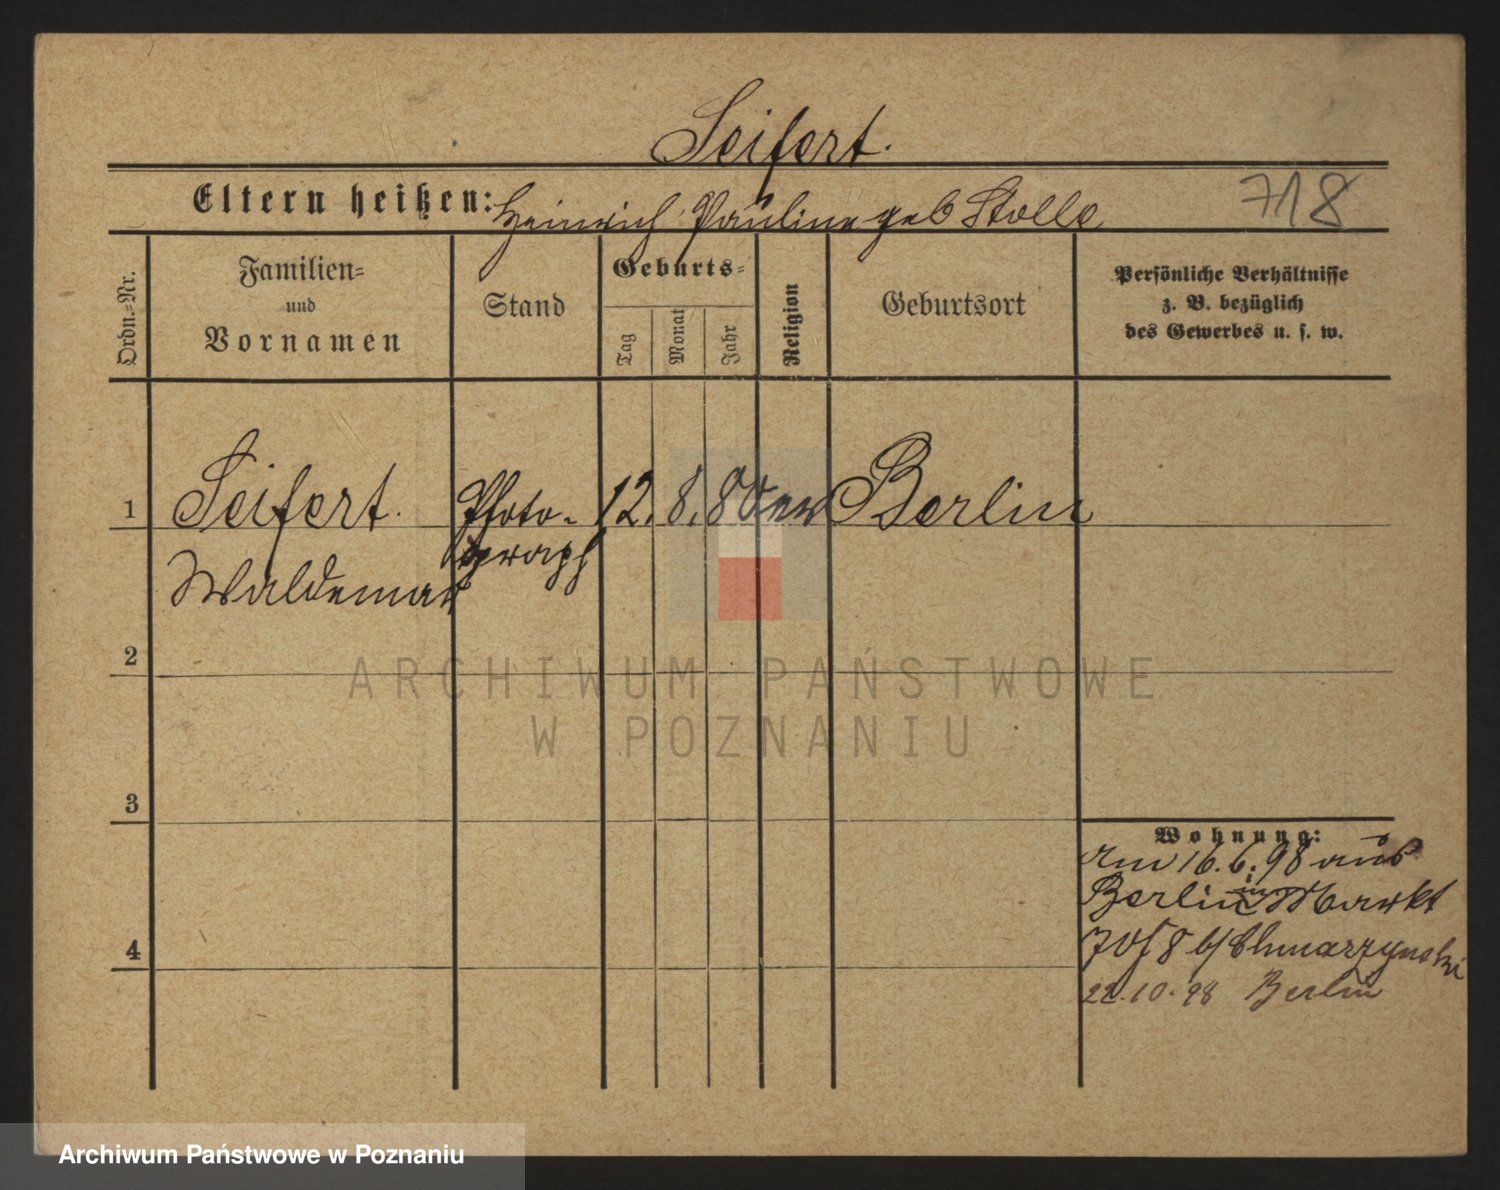 Seifert.
Eltern heißen: Heinrich, Pauline geb Stolle
718
Ordn.=Nr.
Familien=
und
Vornamen
Stand
Geburts=
Tag
Monat
Jahr
Religion
Geburtsort
Persönliche Verhältnisse
z. B. bezüglich
des Gewerbes u. s. w.
1
Seifert.
Waldemar
Photo-
graph
12. 8. 80 ev Berlin
2
ARCHIWUM PAŃSTWOWE
W POZNANIU
3
Wohnung:
Am 16. 6. 98 aus
Berlin in Markt
8 b/ Chmarzynski
22.10.98 Berlin
4
Archiwum Państwowe w Poznaniu